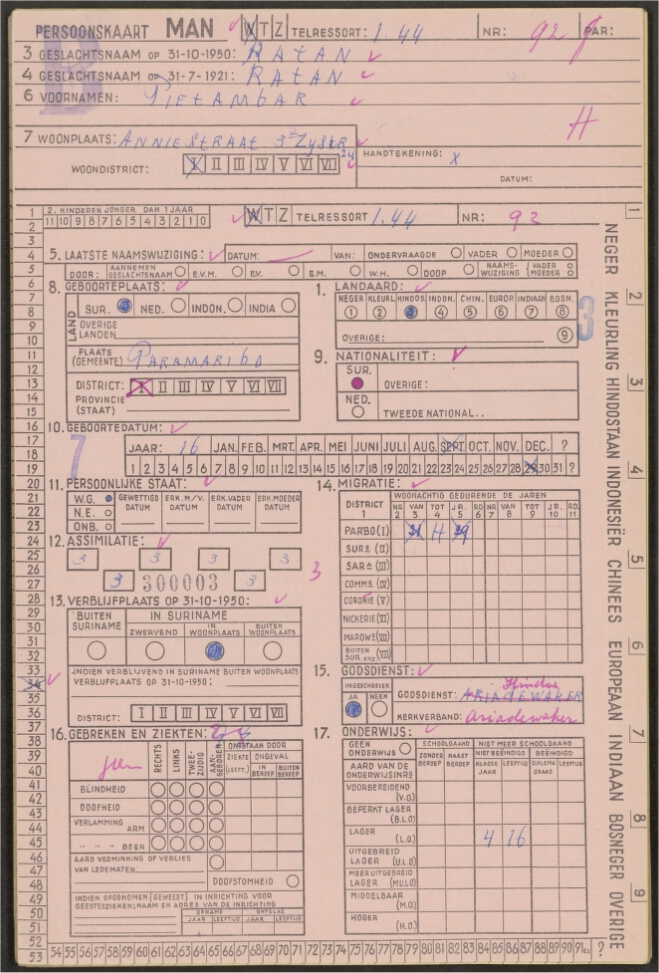 PERSOONSKAART MAN W T Z TELRESSORT: 1.44 NR: 92 PAR:
3 GESLACHTSNAAM OP 31-10-1950: RATAN
4 GESLACHTSNAAM OP 31-7-1921: RATAN
6 VOORNAMEN: PIETAMBAR
H
7 WOONPLAATS: ANNIESTRAAT 3e ZYSTR
24
WOONDISTRICT: I II III IV V VI VII HANDTEKENING: X
DATUM:
2. KINDEREN JONGER DAN 1 JAAR
11 10 9 8 7 6 5 4 3 2 1 0 W T Z TELRESSORT 1.44 NR: 92
5. LAATSTE NAAMSWIJZIGING: DATUM: VAN: ONDERVRAAGDE VADER MOEDER
DOOR: AANNEMEN GESLACHTSNAAM E.V.M. E.V. E.M. W.H. DOOP NAAMSWIJZIGING VADER MOEDER
8. GEBOORTEPLAATS:
LAND SUR. NED. INDON. INDIA
OVERIGE LANDEN
PLAATS (GEMEENTE) PARAMARIBO
DISTRICT: I II III IV V VI VII
PROVINCIE (STAAT)
1. LANDAARD:
NEGER KLEURL. HINDOS. INDON. CHIN. EUROP. INDIAAN BOSN.
1 2 3 4 5 6 7 8
OVERIGE: 9
3
9. NATIONALITEIT:
SUR.
OVERIGE:
NED.
TWEEDE NATIONAL..
10. GEBOORTEDATUM:
7
JAAR: 16 JAN. FEB. MRT. APR. MEI JUNI JULI AUG. SEPT. OCT. NOV. DEC. ?
1 2 3 4 5 6 7 8 9 10 11 12 13 14 15 16 17 18 19 20 21 22 23 24 25 26 27 28 29 30 31 ?
11. PERSOONLIJKE STAAT:
W.G. GEWETTIGD DATUM ERK. M/V. DATUM ERK. VADER DATUM ERK. MOEDER DATUM
N.E.
ONB.
12. ASSIMILATIE:
3 3 3 3
3 300003 3
3
13. VERBLIJFPLAATS OP 31-10-1950:
BUITEN SURINAME IN SURINAME
ZWERVEND IN WOONPLAATS BUITEN WOONPLAATS
INDIEN VERBLIJVEND IN SURINAME BUITEN WOONPLAATS
VERBLIJFPLAATS OP 31-10-1950:
DISTRICT: I II III IV V VI VII
14. MIGRATIE:
DISTRICT 1 WOONACHTIG GEDURENDE DE JAREN
NR 2 VAN 3 TOT 4 JR. 5 RD 6 NR 7 VAN 8 TOT 9 JR. 10 RD. 11
PARBO (I) H 39
SUR. (II)
SAR. (III)
COMM. (IV)
CORONIE (V)
NICKERIE (VI)
MAROW. (VII)
BUITEN SUR. ENZ. (VIII)
15. GODSDIENST:
INGESCHREVEN JA NEEN
Hindoe
GODSDIENST: ARIADEWAKER
KERKVERBAND: Ariadewaker
16. GEBREKEN EN ZIEKTEN:
geen
RECHTS LINKS TWEEZIJDIG AANGEBOREN ONTSTAAN DOOR
ZIEKTE (LEEFT.) ONGEVAL IN BEROEP BUITEN BEROEP
BLINDHEID
DOOFHEID
VERLAMMING ARM
" " BEEN
AARD VERMINKING OF VERLIES
VAN LEDEMATEN:
DOOFSTOMHEID
INDIEN OPGENOMEN (GEWEEST) IN INRICHTING VOOR
GEESTESZIEKEN; NAAM EN ADRES VAN DE INRICHTING
OPNAME JAAR LEEFTIJD ONTSLAG JAAR LEEFTIJD
17. ONDERWIJS:
GEEN ONDERWIJS SCHOOLGAAND NIET MEER SCHOOLGAAND
ZONDER BEROEP NAAST BEROEP NIET BEËINDIGD BEËINDIGD
AARD VAN DE ONDERWIJSINRG KLASSE JAAR LEEFTIJD DIPLOMA GRAAD LEEFTIJD
VOORBEREIDEND (V.O.)
BEPERKT LAGER (B.L.O)
LAGER (L.O.) 4 16
UITGEBREID LAGER (U.L.O)
MEER UITGEBREID LAGER (MULO)
MIDDELBAAR (M.O.)
HOGER (H.O.)
1 2 3 4 5 6 7 8 9 10 11 12 13 14 15 16 17 18 19 20 21 22 23 24 25 26 27 28 29 30 31 32 33 34 35 36 37 38 39 40 41 42 43 44 45 46 47 48 49 50 51 52 53
54 55 56 57 58 59 60 61 62 63 64 65 66 67 68 69 70 71 72 73 74 75 76 77 78 79 80 81 82 83 84 85 86 87 88 89 90 91 ?
NEGER KLEURLING HINDOSTAAN INDONESIËR CHINEES EUROPEAAN INDIAAN BOSNEGER OVERIGE
1 2 3 4 5 6 7 8 9